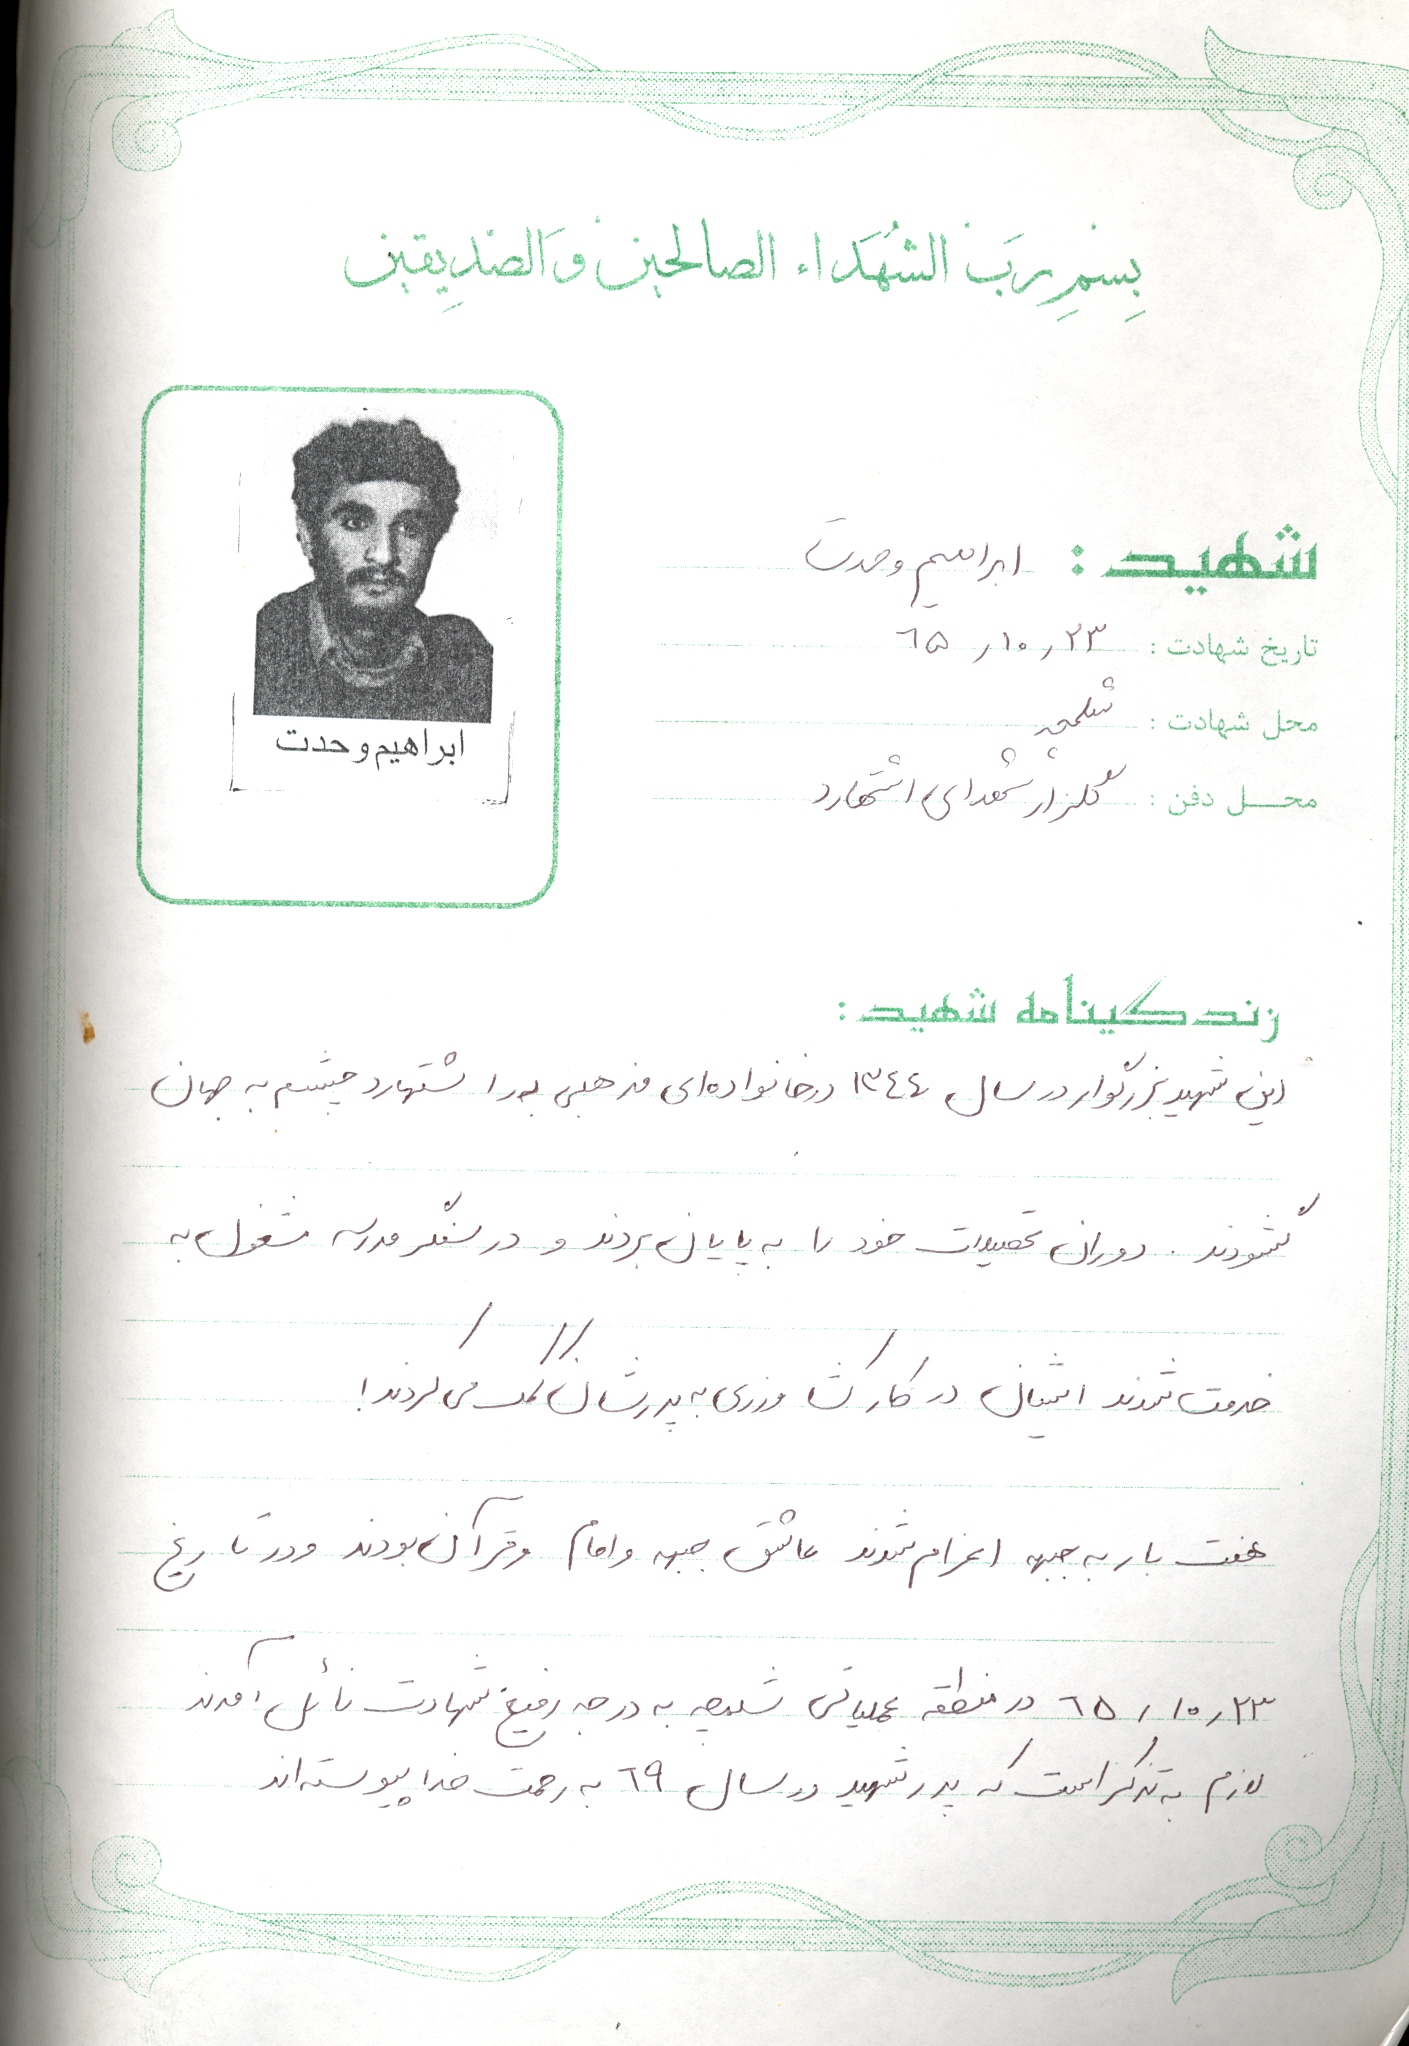 بِسْمِ رَبِّ الشُهَداء الصالحين وَالصّدِيقين
شهید : ابراهیم وحدت
تاریخ شهادت : ۲۳ر۱۰ر ۶۵
محل شهادت : شلمچه
محــل دفن : گلزار شهدای اشتهارد
ابراهیم وحدت
زندگینامه شهید :
این شهید بزرگوار در سال ۱۳۴۴ در خانواده‌ای مذهبی در اشتهارد چشم به جهان
گشودند . دوران تحصیلات خود را به پایان بردند و در سنگر مدرسه مشغول به
خدمت شدند ایشان در کار کشاورزی به پدرشان کمک می کردند!
هفت بار به جبهه اعزام شدند عاشق جبهه و امام و قرآن بودند و در تاریخ
۲۳ر۱۰ر ۶۵ در منطقه عملیاتی شلمچه به درجه رفیع شهادت نائل آمدند
لازم به تذکر است که پدر شهید در سال ۶۹ به رحمت خدا پیوسته‌اند